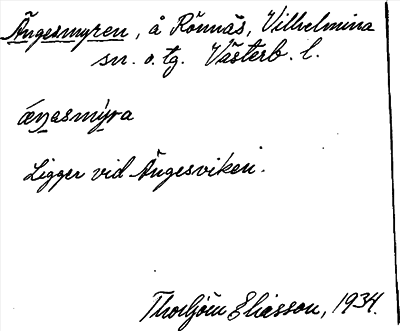 Ängesmyren, å Rönnäs, Vilhelmina
sn. o. tg. Västerb. l.
æŋasmýra
Ligger vid Ängesviken.
Thorbjörn Eliasson, 1934.